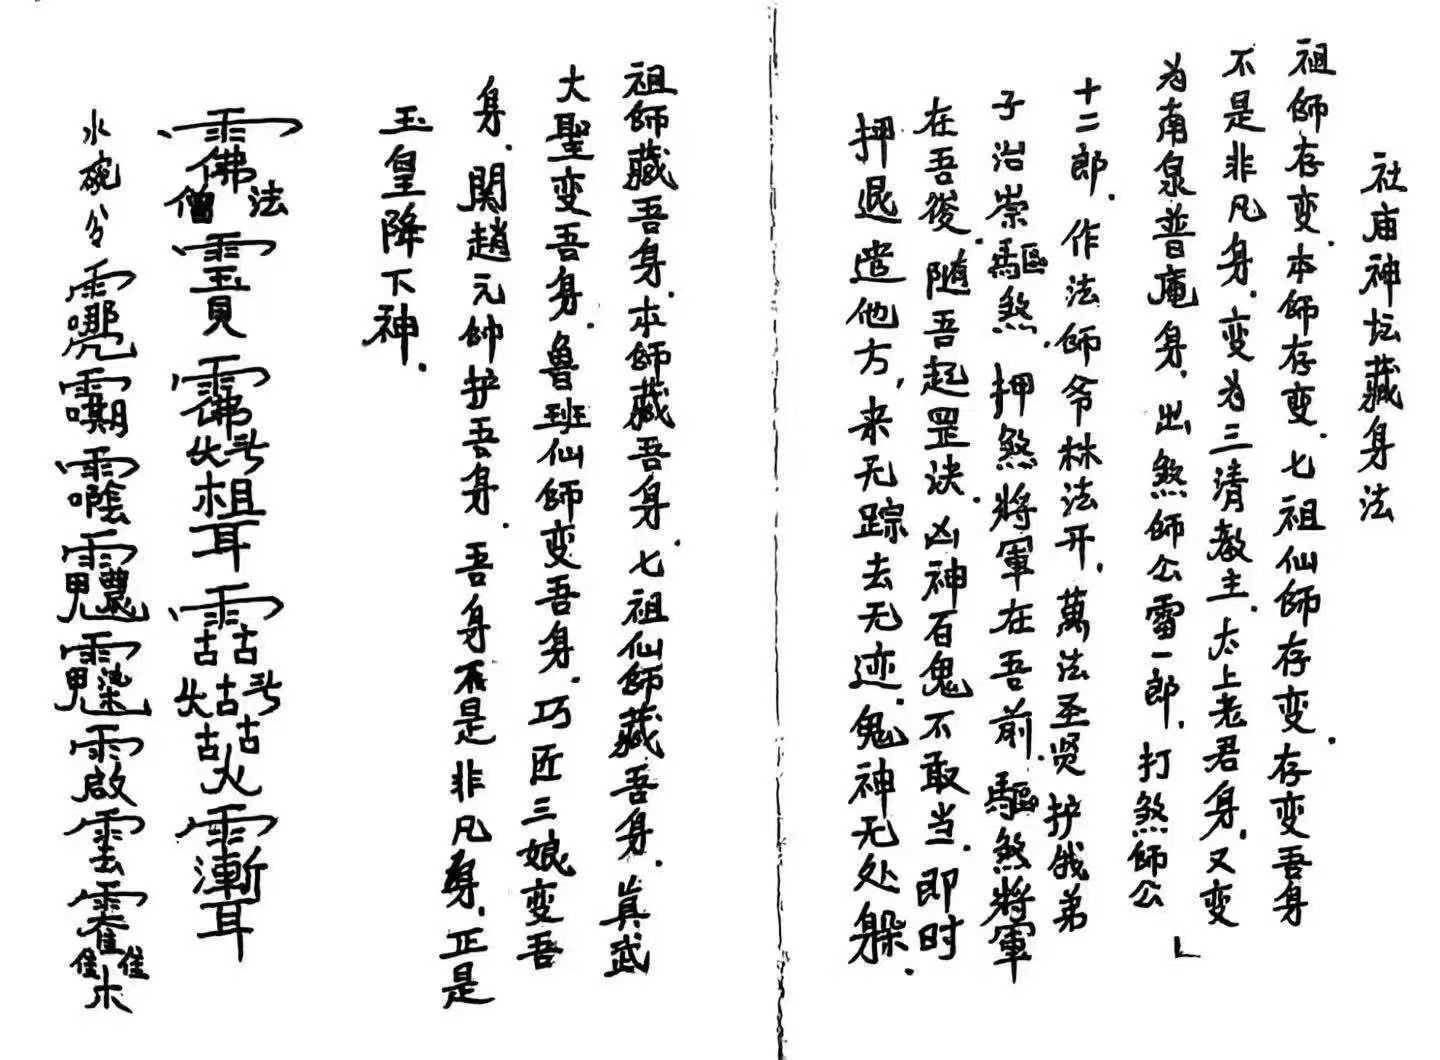 社庙神坛藏身法
祖師存变.本師存变.七祖仙師存变.存变吾身
不是非凡身.变为三清教主.太上老君身.又变
为南泉普庵身.出煞師公雷一郎.打煞師公
十二郎.作法師爷林法开.萬法圣贤护俄弟
子治崇驅煞.押煞將軍在吾前.驅煞將軍
在吾後.随吾起罡決.凶神百鬼不敢当.即时
押退遣他方,来无踪去无迹.鬼神无处躲.
祖師藏吾身.本師藏吾身.七祖仙師藏吾身.真武
大聖变吾身.魯班仙師变吾身.巧匠三娘变吾
身.関趙元帅护吾身.吾身不是非凡身.正是
玉皇降下神.
水碗